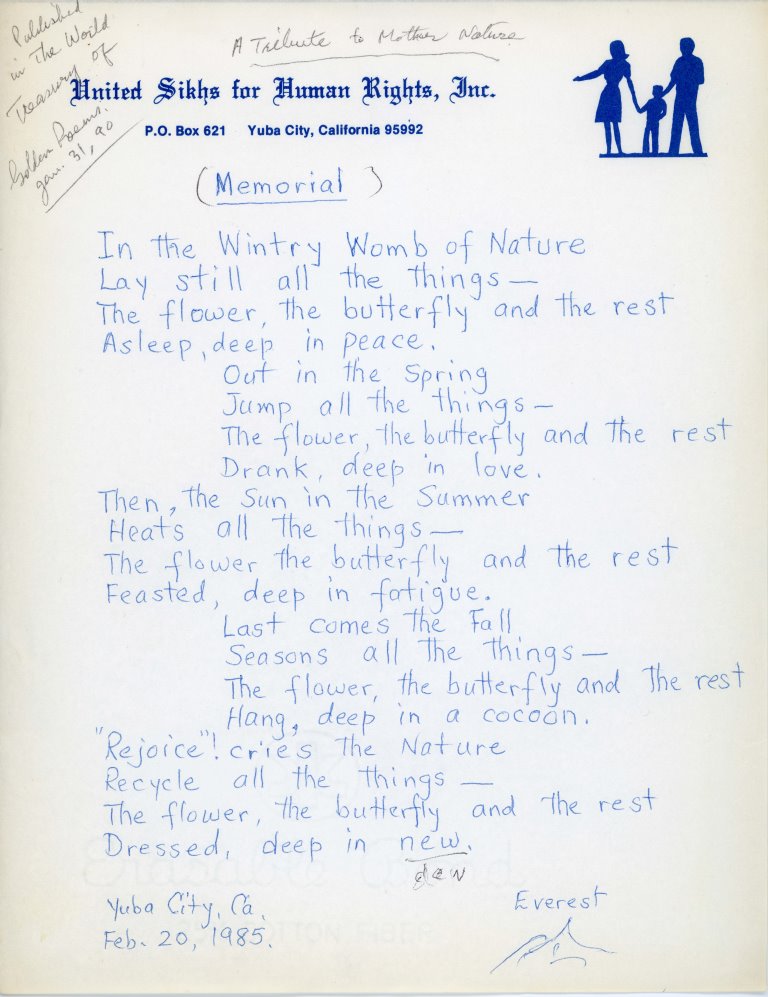 Published
in The World
Treasury of
Golden Poems.
Jan. 31, 90
A Tribute to Mother Nature
United Sikhs for Human Rights, Inc.
P.O. Box 621 Yuba City, California 95992
(Memorial)
In the Wintry Womb of Nature
Lay still all the things —
The flower, the butterfly and the rest
Asleep, deep in peace.
Out in the Spring
Jump all the things —
The flower, the butterfly and the rest
Drank, deep in love.
Then, the Sun in the Summer
Heats all the things —
The flower the butterfly and the rest
Feasted, deep in fatigue.
Last comes the Fall
Seasons all the things —
The flower, the butterfly and the rest
Hang, deep in a cocoon.
"Rejoice"! cries the Nature
Recycle all the things —
The flower, the butterfly and the rest
Dressed, deep in new.
dew
Yuba City, Ca.
Feb. 20, 1985.
Everest
COTTON FIBER